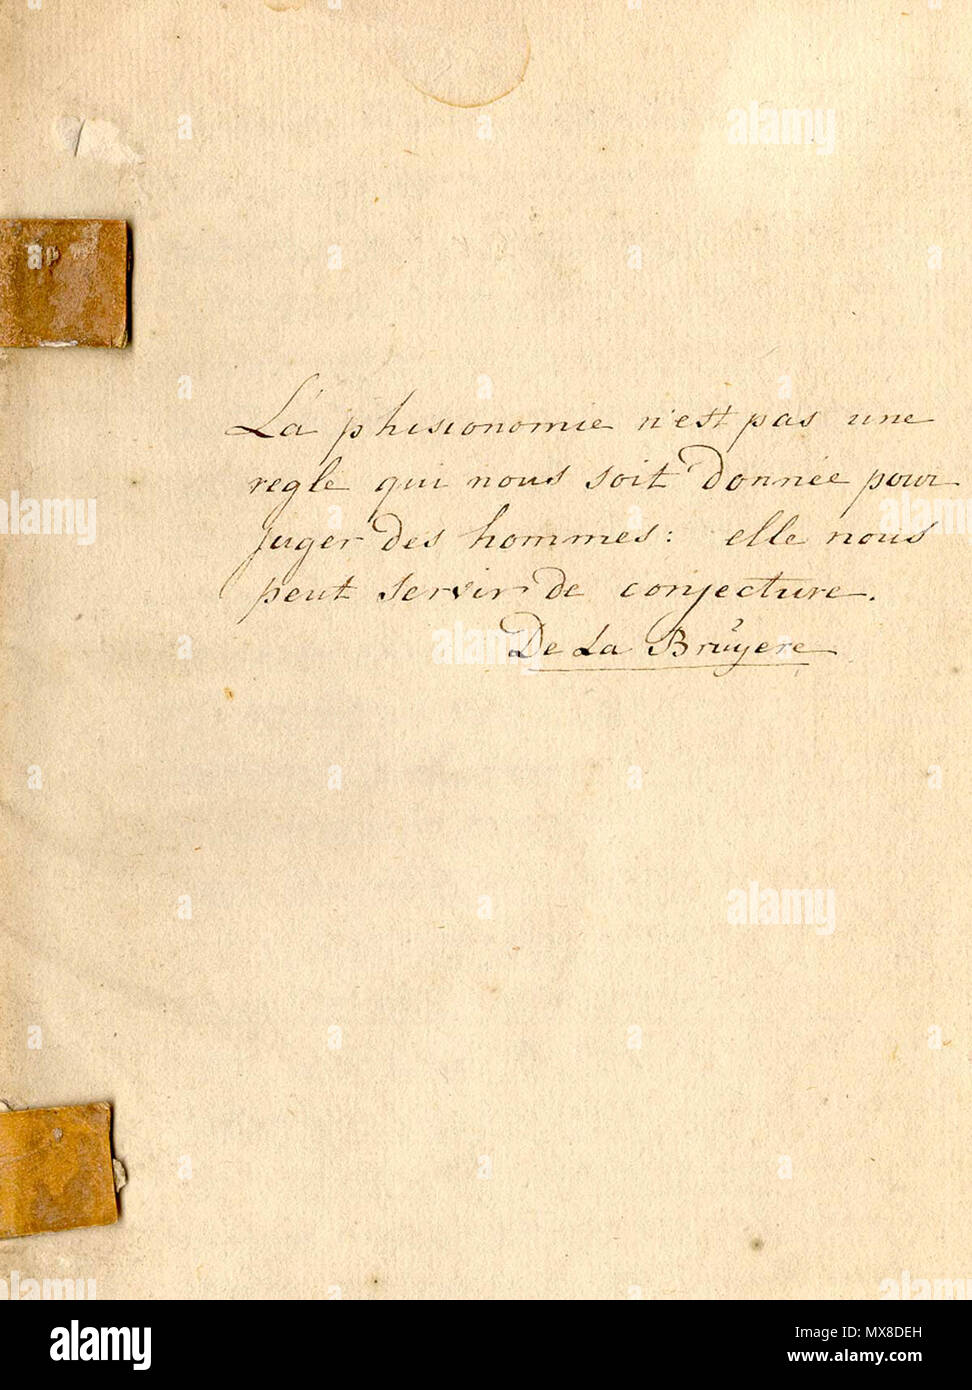 La phisionomie n'est pas une
regle qui nous soit donnée pour
juger des hommes: elle nous
peut servir de conjecture.
De La Bruÿere
alamy
Image ID: MX8DEH
www.alamy.com